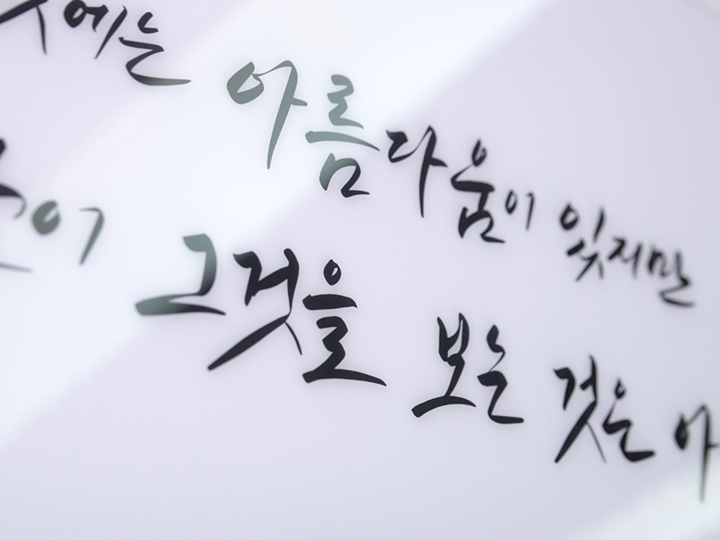 에는 아름다움이 있지만
이 그것을 보는 것은 아